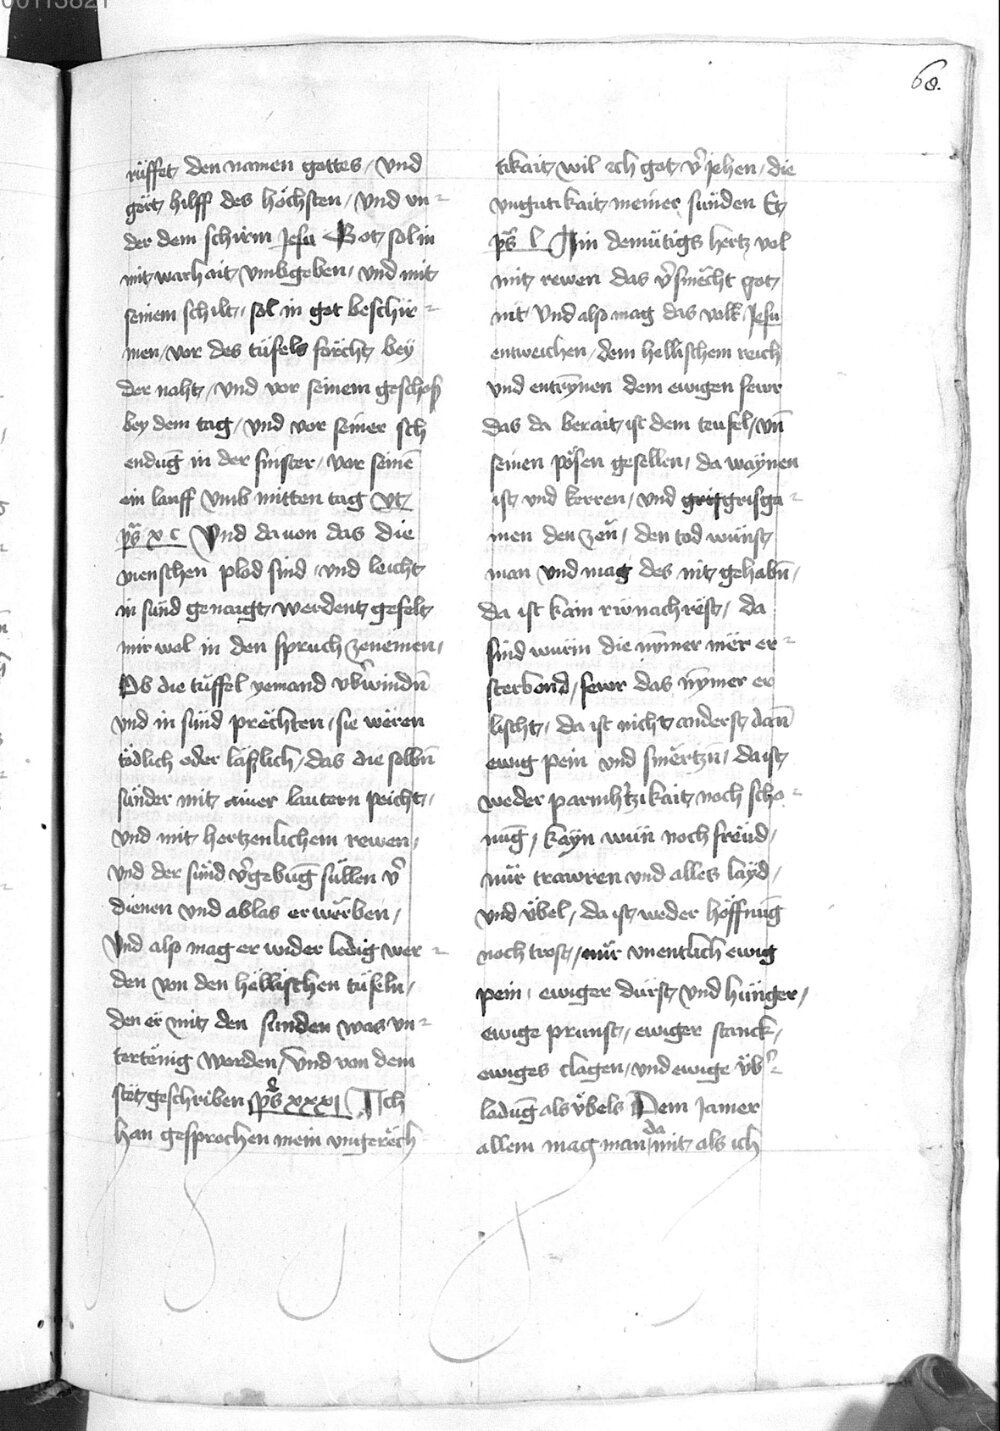 68.
rüffet den namen gottes / Vnd
gert hilff des höchsten / Vnd vn-
der dem schirm Jesu Got sol in
mit warhait vmbgeben / vnd mit
seinem schilt / sol in got beschir-
men / vor des tüfels forcht bey
der naht / Vnd vor seinem geschoß
bey dem tag / vnd vor seiner sch
endūg in der finster / vor seinē
ein lauff vmb mitten tag vt
ps̄ xc Vnd dauon das die
menschen plöd sind / vnd leicht
in sünd genaigt werdent gefelt
mir wol in den spruch zenemen /
Ob die tüffel yemand vb̾windn̄
vnd in sünd prëchten / sie wëren
tödlich oder läßlich / das die selbn̄
sünder mit ainer lautern peicht /
vnd mit hertzenlichem rewen /
vnd der sünd v̾gebūg süllen v̾
dienen vnd ablas erwërben /
Vnd also mag er wider ledig wer-
den von den hëllischen tüfeln /
den er mit den sunden was vn-
tertënig worden / vnd von dem
stet geschriben ps̄ xxxi Ich
han gesprochen mein vngerëch
tikait wil ich got v̾jehen / die
vngütikait meiner sünden Et
ps̄ l Ain demütigs hertz vol
mit rewen das v̾smëcht got
nit Vnd also mag das volk Jesu
entweichen / dem hellischem reich
vnd entrȳnen dem ewigen fewr
das da berait ist dem teufel / vn̄
seinen pösen gesellen / da waynen
ist vnd kerren / vnd grisgrisga-
men den zen / den tod wünst
man vnd mag des nit gehabn̄ /
da ist kain rw nach rest / da
sind würm die nȳmer mër er-
sterbend / fewr das nȳmer er
lischt / da ist nicht anderst dan̄
ewig pein vnd smërtzn̄ / da ist
weder parmhtzikait noch scho-
nūg / kayn wun noch frëud /
nür trawren vnd alles layd /
vnd übel / da ist weder höffnūg
noch trost / nür vnentlich ewig
pein / ewiger dürst vnd hunger /
ewige prunst / ewiger stanck /
ewiges clagen / vnd ewige üb̾-
ladūg als übels Dem Jamer
allem mag man da mit als ich